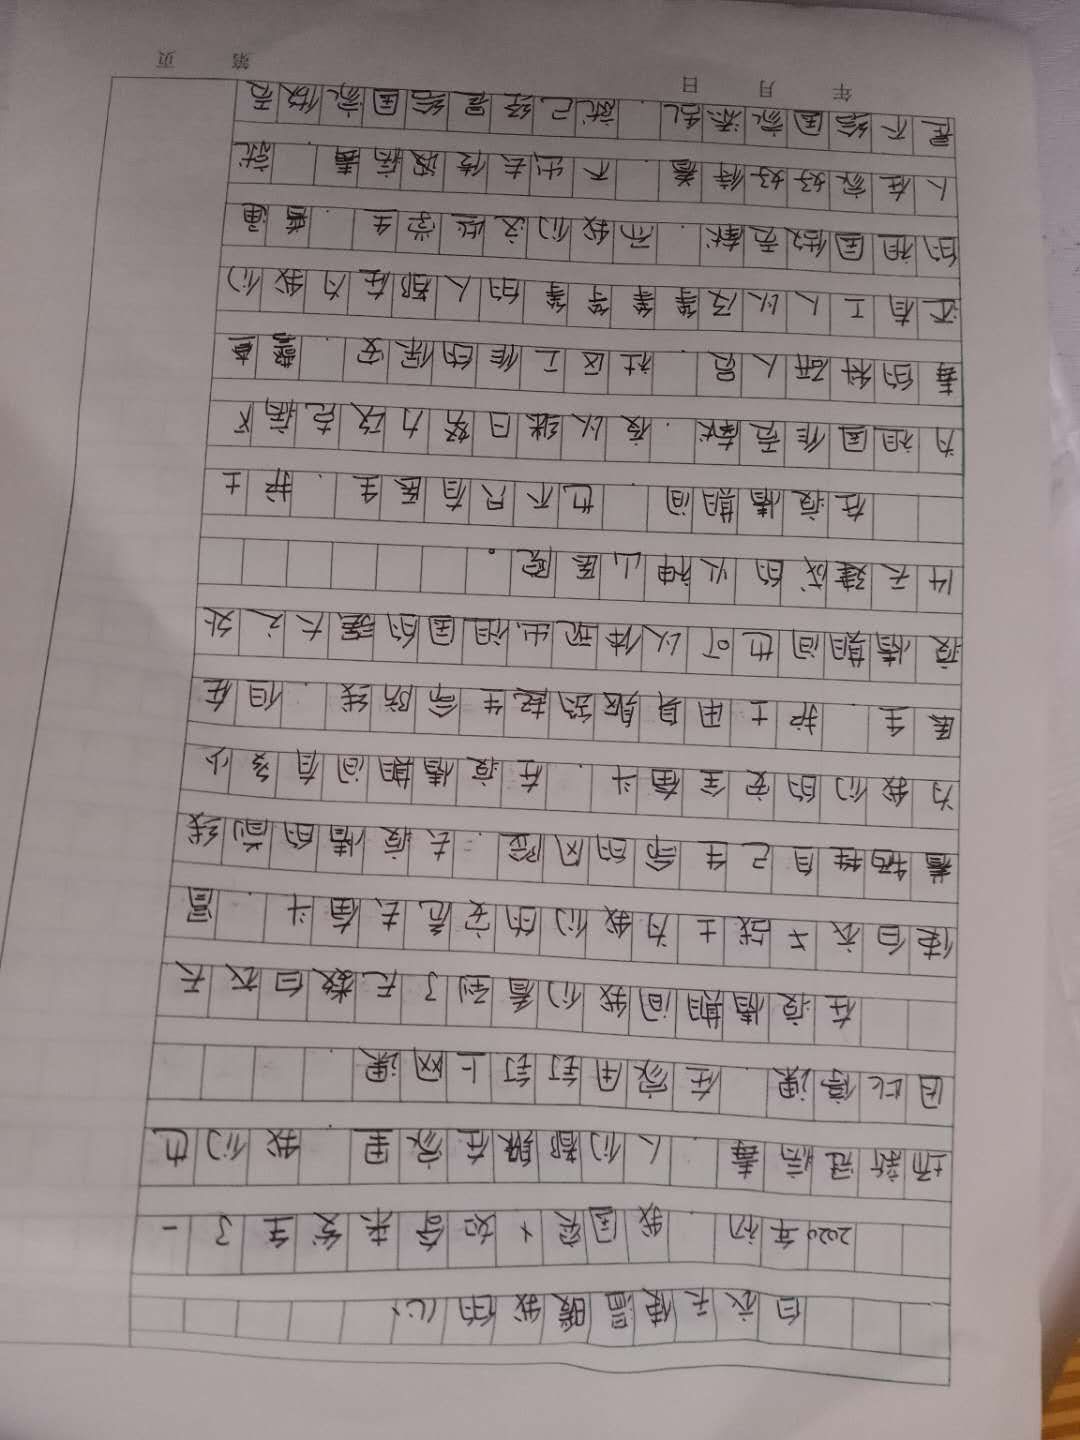 白衣天使温暖我的心
2020年初 我国突如奇来发生了一
场新冠病毒 人们都躲在家里 我们也
因此停课 在家用钉钉上网课
在疫情期间我们看到了无数白衣天
使白衣战士为我们的安危去奋斗 冒
着牺牲自己生命的风险 去疫情的前线
为我们的安全奋斗 在疫情期间有多少
医生 护士用身躯筑起生命防线 但在
疫情期间也可以体现出祖国的强大之处
14天建成的火神山医院。
在疫情期间 也不只有医生 护士
为祖国作贡献 夜以继日努力攻克病
毒的科研人员 社区工作的保安 警察
还有工人以及等等等等的人都在为我们
的祖国做贡献 而我们这些学生 普通
人在家好好待着 不出去传播病毒 就
是不给国家添乱 就已经是给国家做贡
年 月 日
第 页